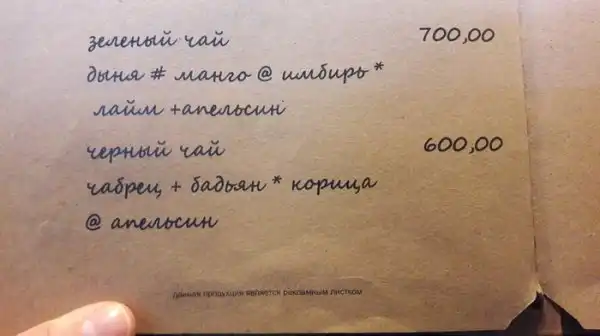 зеленый чай 700,00
дыня # манго @ имбирь *
лайм +апельсин
черный чай 600,00
чабрец + бадьян * корица
@ апельсин
Данная продукция является рекламным листком